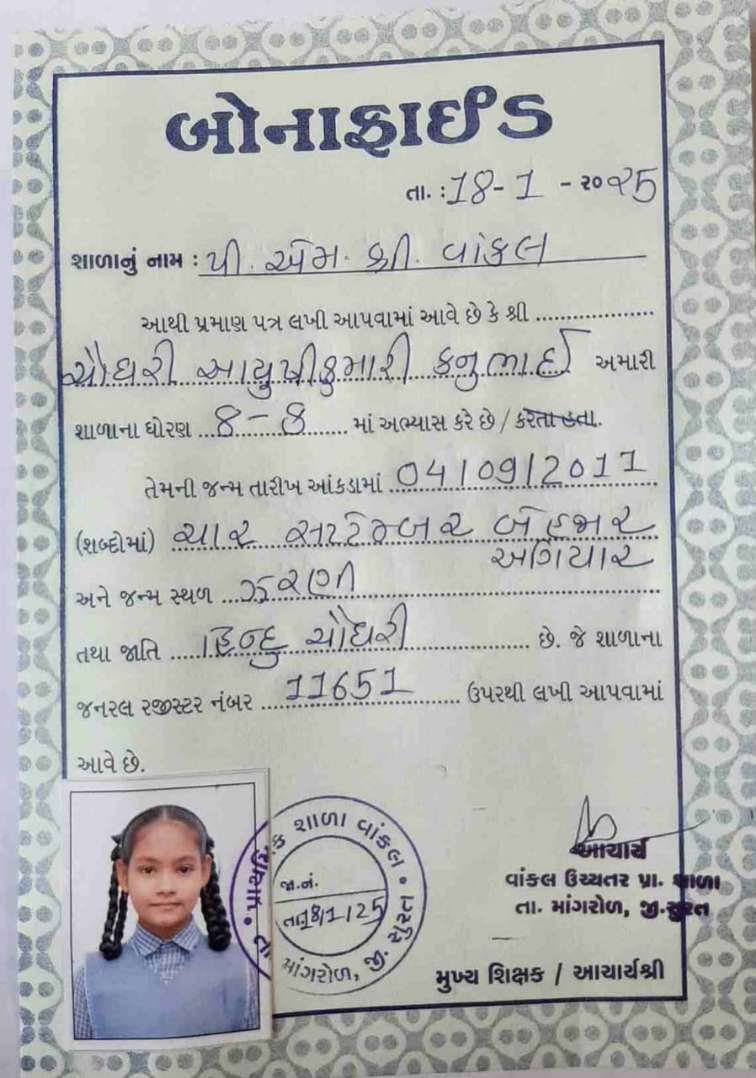 બોનાફાઈડ
તા. : 18-1 - ૨૦૨5
શાળાનું નામ : પી. એમ. શ્રી. વાંકલ
આથી પ્રમાણ પત્ર લખી આપવામાં આવે છે કે શ્રી ..................
ચૌધરી આયુષીકુમારી કનુભાઈ અમારી
શાળાના ધોરણ ...8-8...... માં અભ્યાસ કરે છે / કરેતા હતા.
તેમની જન્મ તારીખ આંકડામાં .04/09/2011
(શબ્દોમાં) ચાર સપ્ટેમ્બર બેહજાર
અગિયાર
અને જન્મ સ્થળ ...ઝરણી..................
તથા જાતિ .....હિન્દુ ચૌધરી............... છે. જે શાળાના
જનરલ રજીસ્ટર નંબર ....11651......... ઉપરથી લખી આપવામાં
આવે છે.
શાળા વાંકલ
જા.નં.
તા.18/1/25
તા. માંગરોળ, જી. સુરત
આચાર્ય
વાંકલ ઉચ્યતર પ્રા. શાળા
તા. માંગરોળ, જી.સુરત
મુખ્ય શિક્ષક / આચાર્યશ્રી